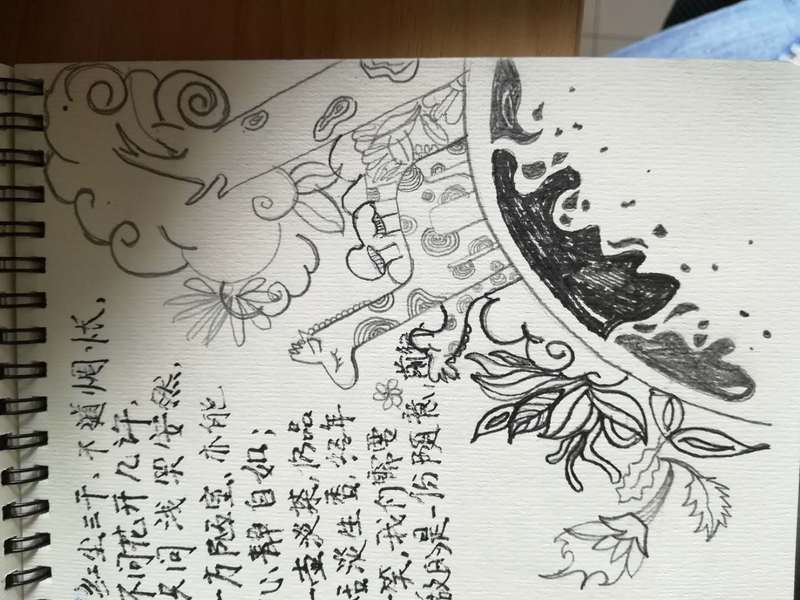 红尘三千、不道惆怅,
不问花开几许,
只问浅笑安然,
一方陋室、亦能
心静自如;
一壶淡茶,仍品
淡生香,年
一笑,我们都需
做的是一份随意,